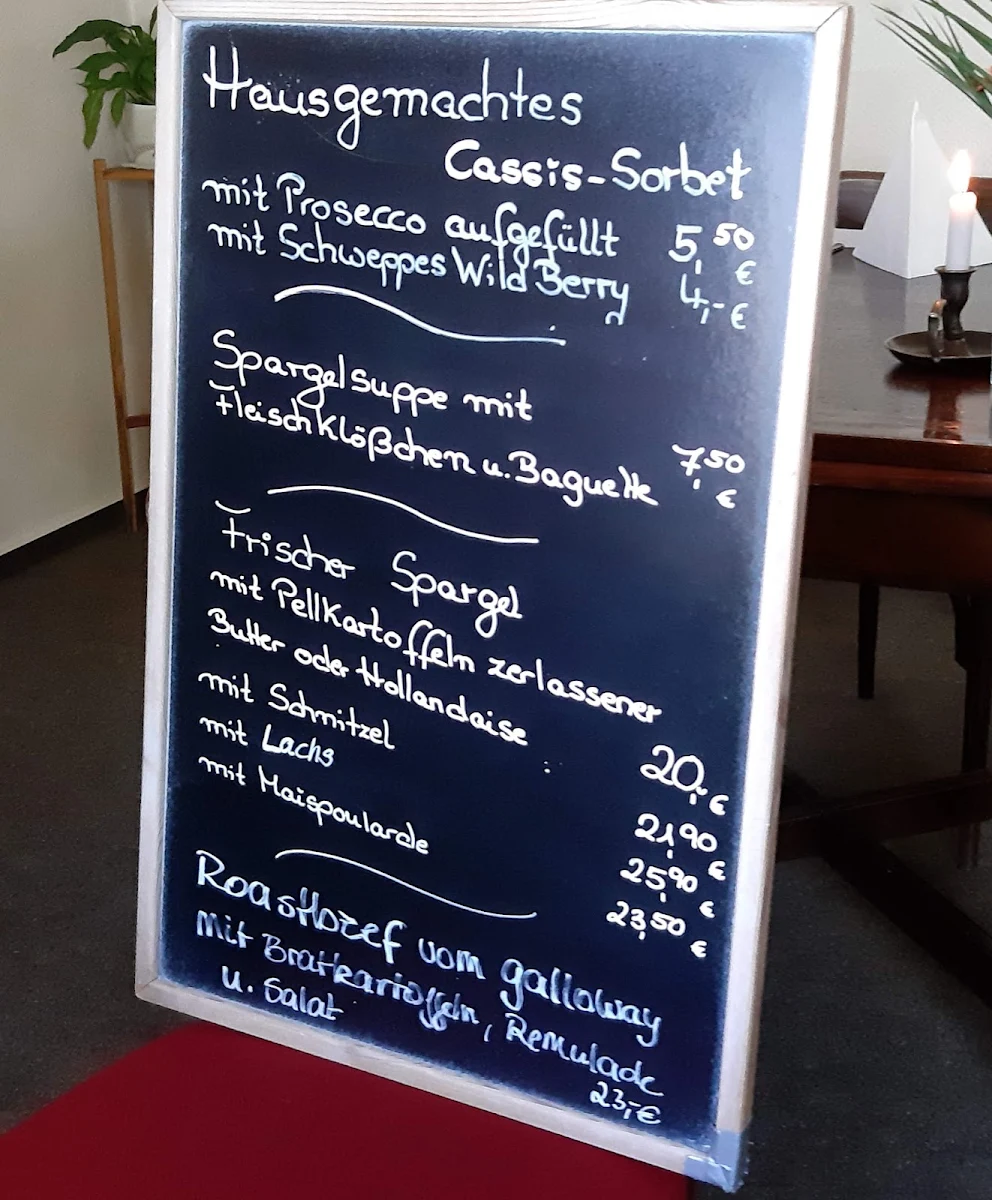 Hausgemachtes
Cassis-Sorbet
mit Prosecco aufgefüllt 5,50 €
mit Schweppes Wild Berry 4,- €
Spargelsuppe mit
Fleischklößchen u. Baguette 7,50 €
Frischer Spargel
mit Pellkartoffeln zerlassener
Butter oder Hollandaise 20,- €
mit Schnitzel 21,90 €
mit Lachs 25,90 €
mit Maispoularde 23,50 €
Roastbeef vom galloway
Mit Bratkartoffeln, Remulade
u. Salat
23,- €